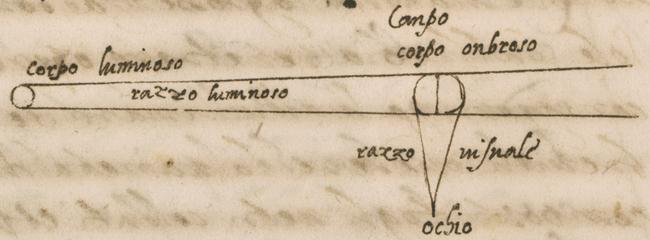 Canpo
corpo luminoso
corpo onbroso
razzo luminoso
razzo visuale
ochio